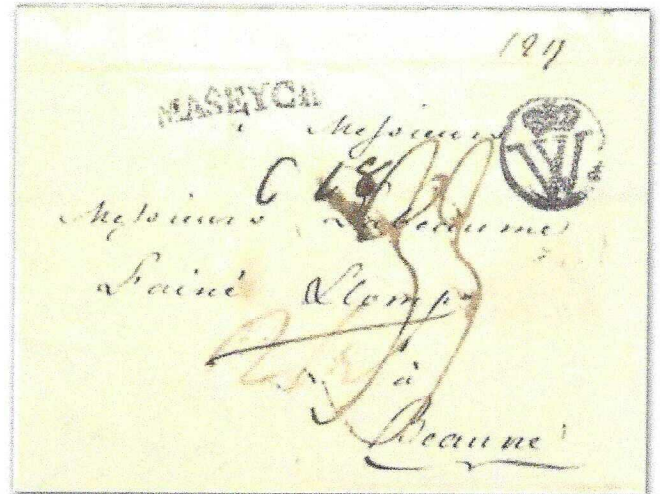 129
MASEYCK
Messieurs
W
C 18
33
Messieurs
L'ainé & Comp
à
Beaune